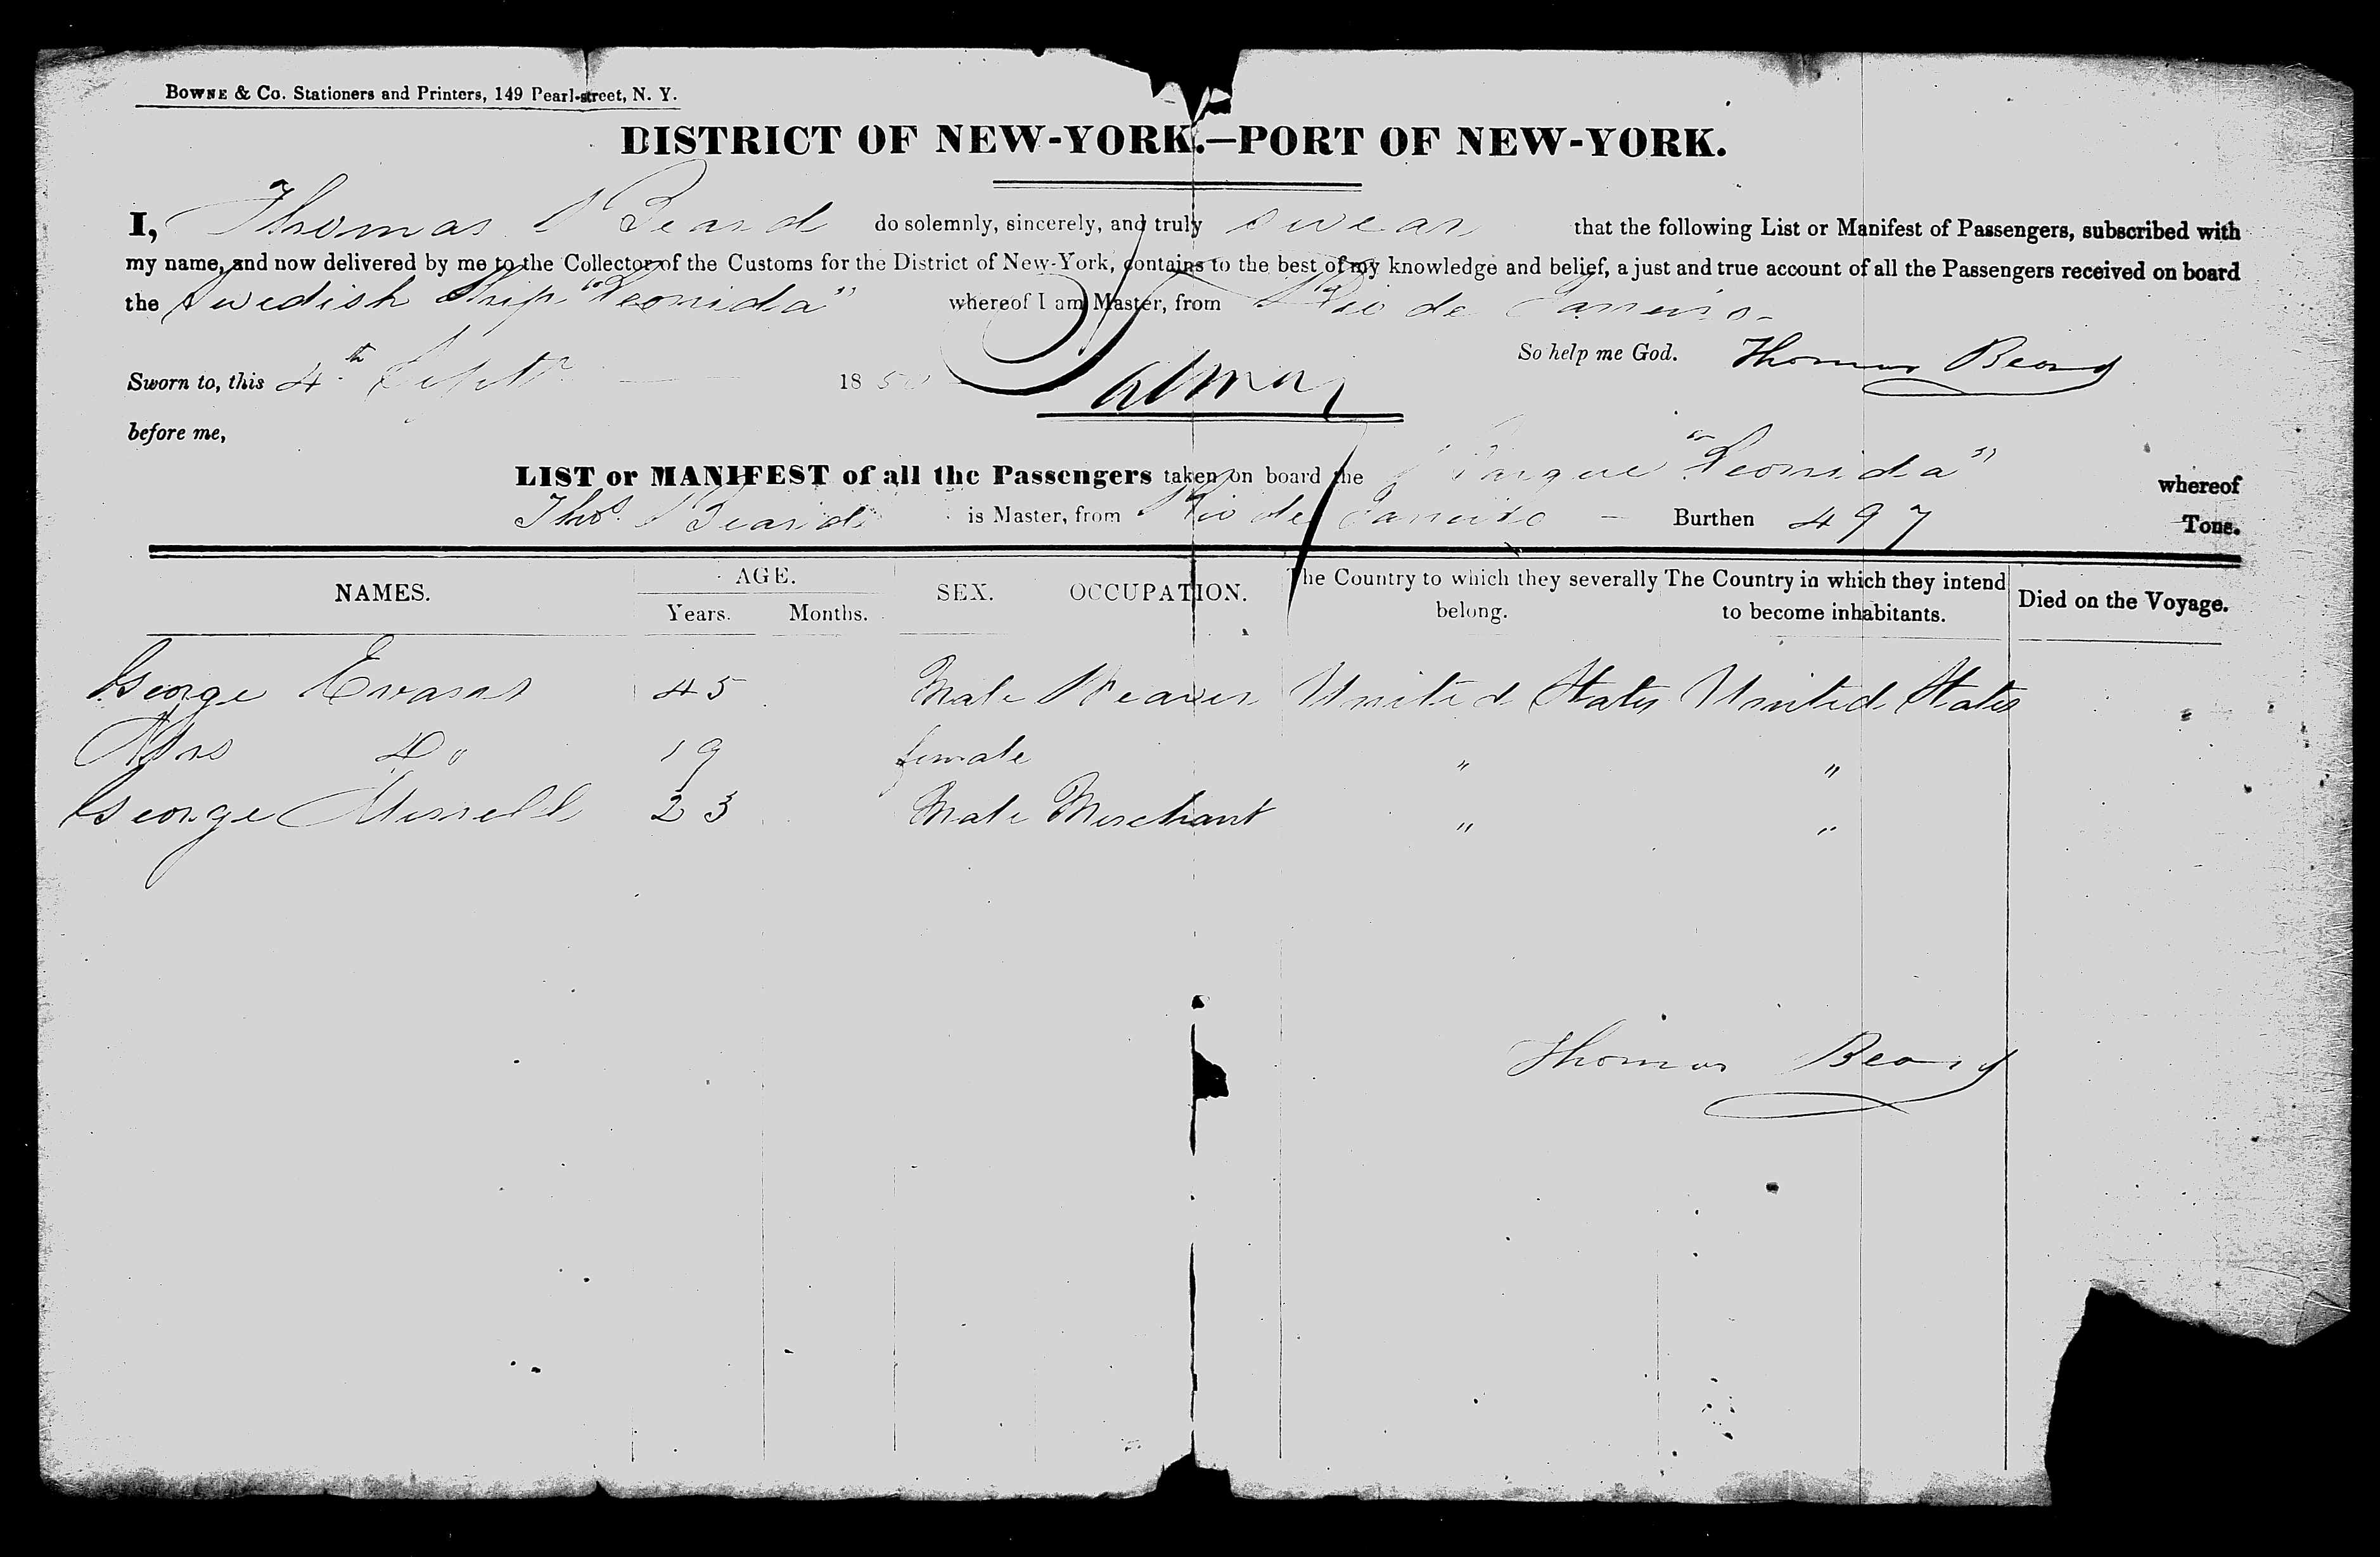 BOWNE & CO. Stationers and Printers, 149 Pearl-street, N. Y.
DISTRICT OF NEW-YORK.—PORT OF NEW-YORK.
I, Thomas Beard do solemnly, sincerely, and truly swear that the following List or Manifest of Passengers, subscribed with
my name, and now delivered by me to the Collector of the Customs for the District of New-York, contains to the best of my knowledge and belief, a just and true account of all the Passengers received on board
the Swedish Ship "Leonida" whereof I am Master, from Rio de Janeiro -
So help me God. Thomas Beard
Sworn to, this 4th Septr — 1850
before me,
LIST or MANIFEST of all the Passengers taken on board the Barque "Leonida" whereof
Thos. Beard is Master, from Rio de Janeiro — Burthen 497 Tons.
NAMES. AGE. SEX. OCCUPATION. The Country to which they severally belong. The Country in which they intend to become inhabitants. Died on the Voyage.
Years. Months.
George Evans 45 Male Weaver United States United States
Mrs Do 19 female " "
George Merrell 23 Male Merchant " "
Thomas Beard